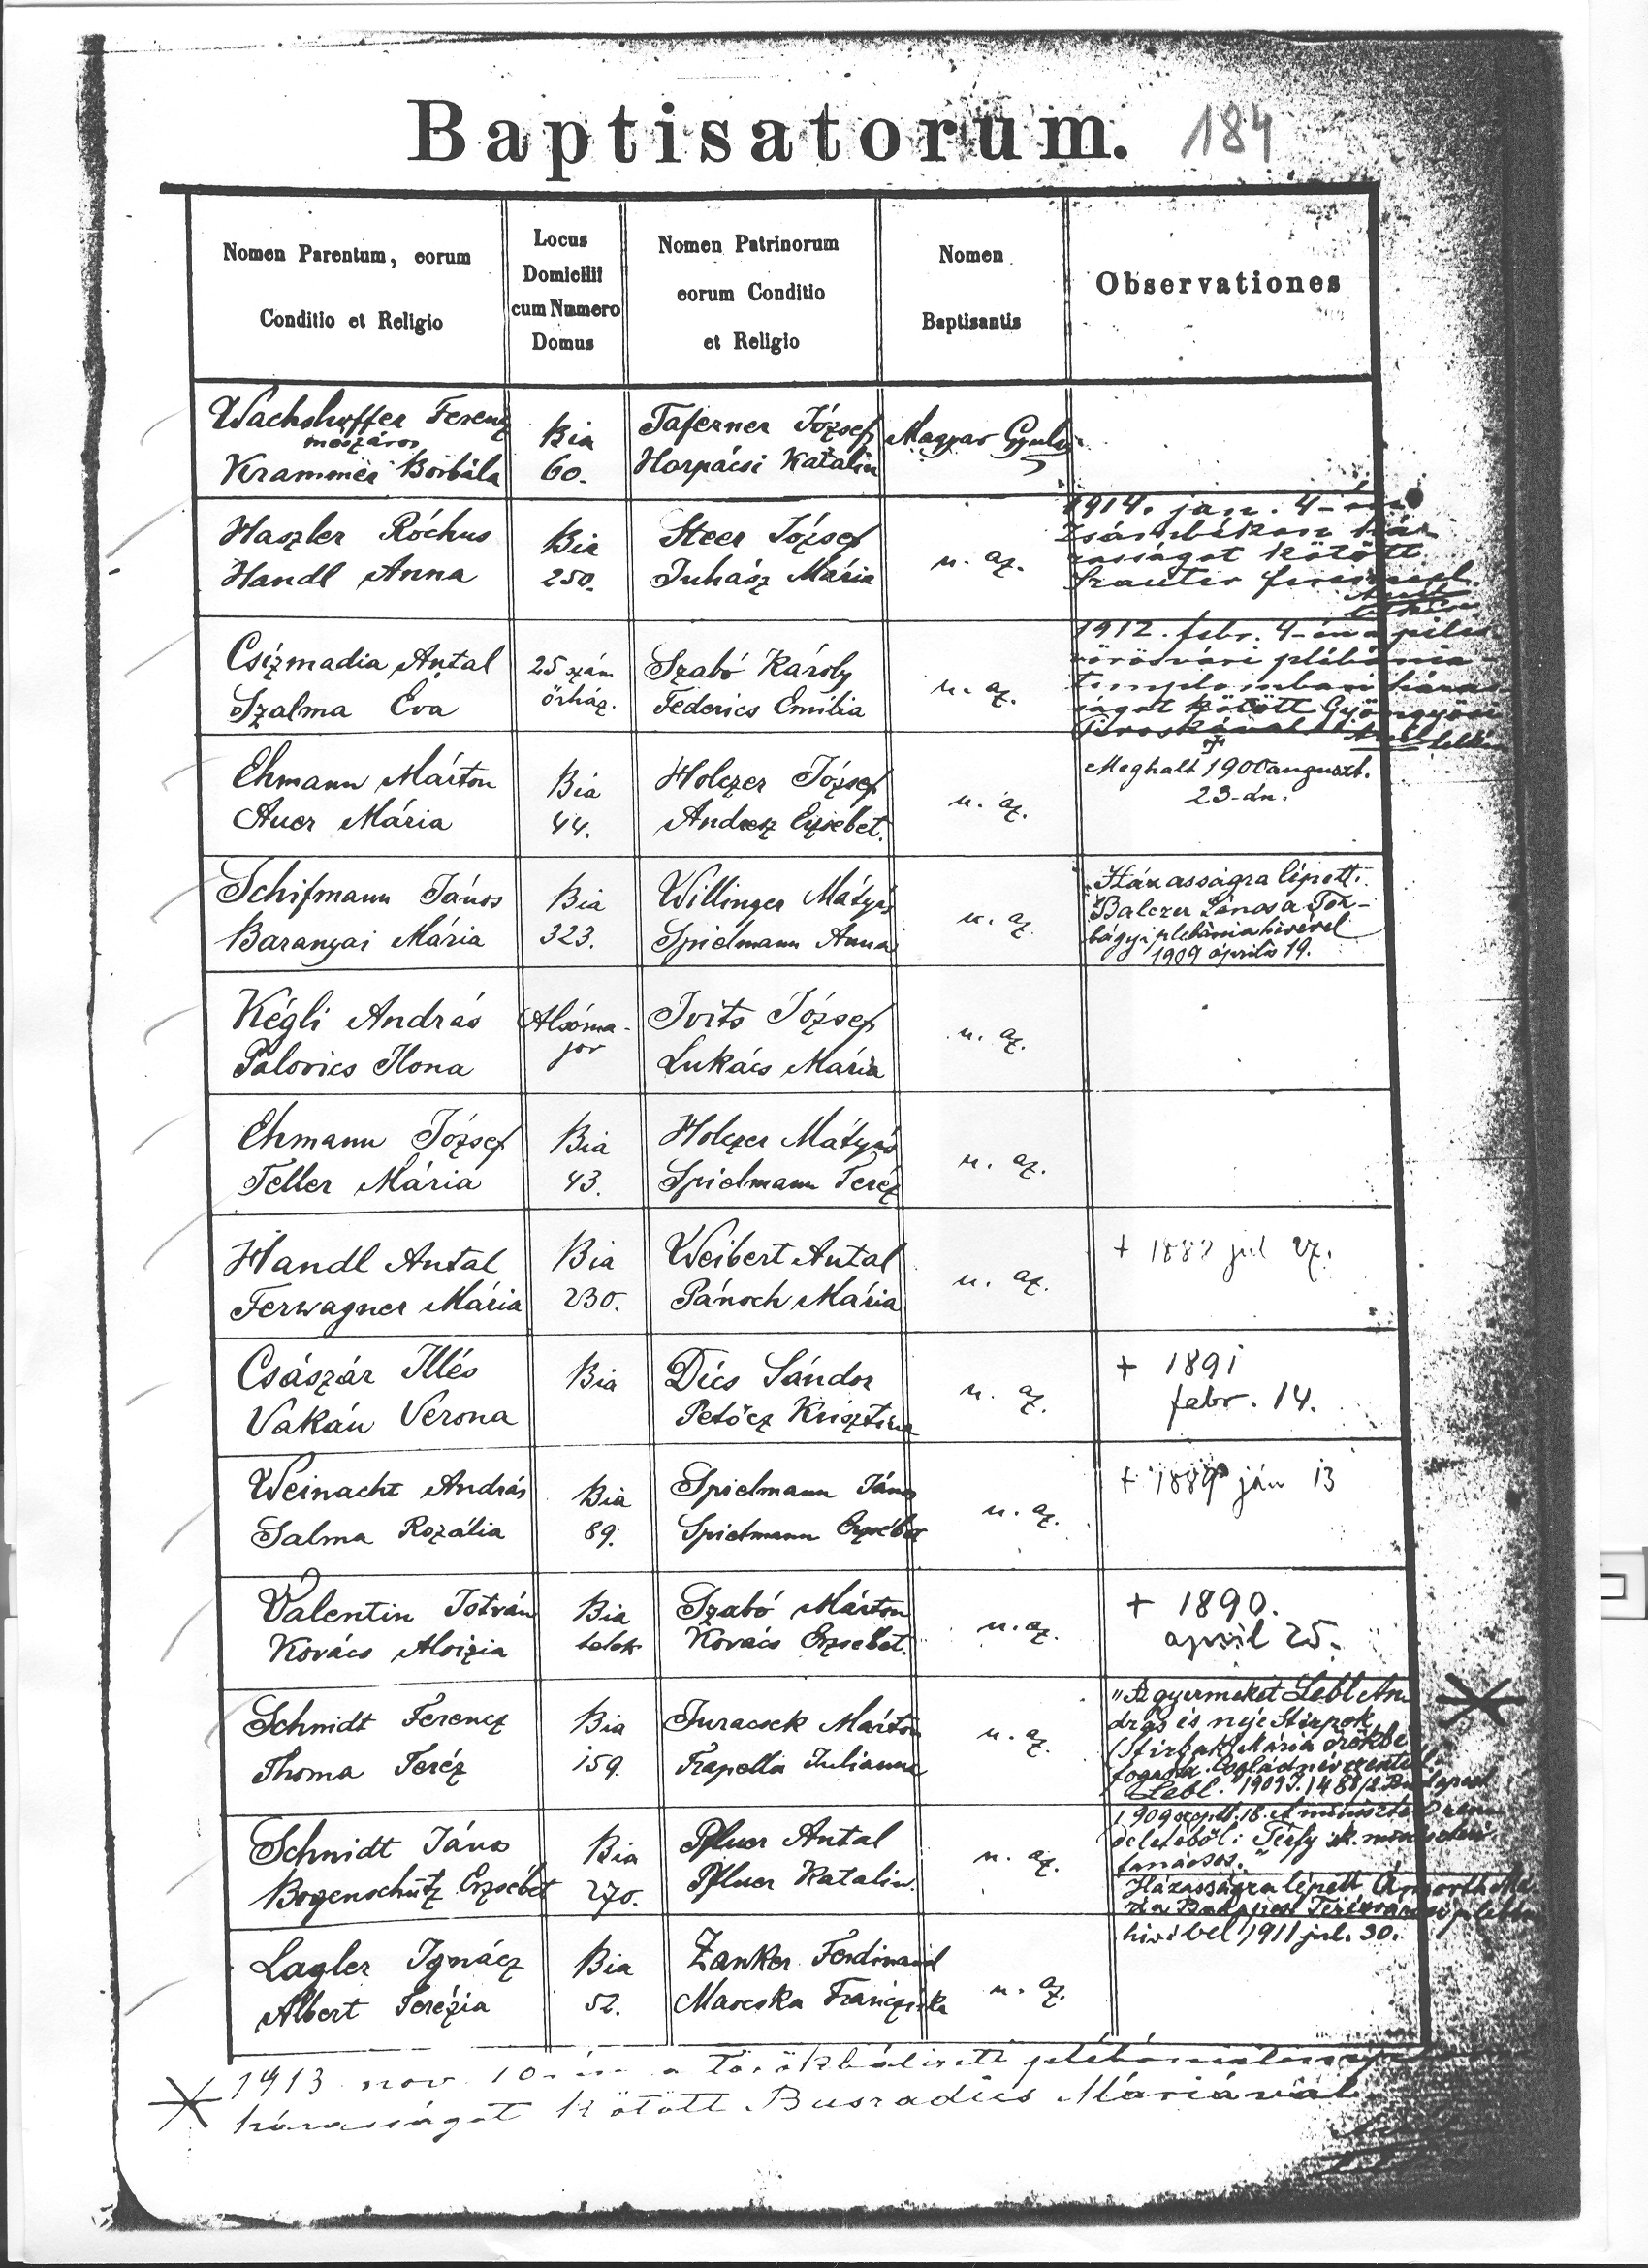 Baptisatorum. 184
Nomen Parentum, eorum
Conditio et Religio
Locus
Domicilii
cum Numero
Domus
Nomen Patrinorum
eorum Conditio
et Religio
Nomen
Baptisantis
Observationes
Wachshoffer Ferencz
mészáros
Krammer Borbála
Bia
60.
Taferner József
Horpácsi Katalin
Magyar Gyula
Haszler Róchus
Handl Anna
Bia
250.
Steer József
Juhász Mária
u. az.
1914. jan. 4-én
Zsámbékon há
zasságot kötött
Csizmadia Antal
Szalma Éva
25 szám
őrház.
Szabó Károly
Federics Emilia
u. az.
1912. febr. 4-én a pilis
vörösvári plébánia
templomban házas
ságot kötött Gyöngyösi
Piroskával
Ehmann Márton
Auer Mária
Bia
44.
Holczer József
Andresz Erzsebet.
u. az.
Meghalt 1900 auguszt.
23-án.
Schifmann János
Baranyai Mária
Bia
323.
Willinger Mátyás
Spielmann Anna
u. az.
Házasságra lépett
Balczer János a Tör-
bágyi plebánia hivével
1909 április 19.
Kégli András
Palovics Ilona
Alsóma-
jor
Ivits József
Lukács Mária
u. az.
Ehmann József
Teller Mária
Bia
43.
Holczer Mátyás
Spielmann Teréz
u. az.
Handl Antal
Ferwagner Mária
Bia
230.
Weibert Antal
Pánoch Mária
u. az.
+ jul 27.
Császár Illés
Vakán Verona
Bia
Dics Sándor
Petőcz Krisztina
u. az.
+ 1891
febr. 14.
Weinacht András
Salma Rozália
Bia
89.
Spielmann János
Spielmann Erzsébet
u. az.
+ 1889 ján 13
Valentin István
Kovács Aloizia
Bia
telek
Szabó Márton
Kovács Erzsebet.
u. az.
+ 1890.
april 25.
Schmidt Ferencz
Thoma Teréz
Bia
159.
Juracsek Márton
Trapella Julianna
u. az.
"A gyermeket Lebl An
drás és neje Stirpok
(Stirbak) Mária örökbe
fogadta. Családnév ezentúl
Lebl. 1909
Schmidt János
Bogenschütz Erzsébet
Bia
270.
Pfluer Antal
Pfluer Katalin.
u. az.
1909 szept. 18. A miniszter ren
deletéből: Térfy sk. miniszteri
tanácsos."
Házasságra lépett
hivével 1911 jul. 30.
Lagler Ignácz
Albert Terézia
Bia
52.
Zanker Ferdinand
Marcska Francziska
u. az.
1913 nov 10-én a törökbálinti plébániatemplom
házasságot kötött Busradics Máriával